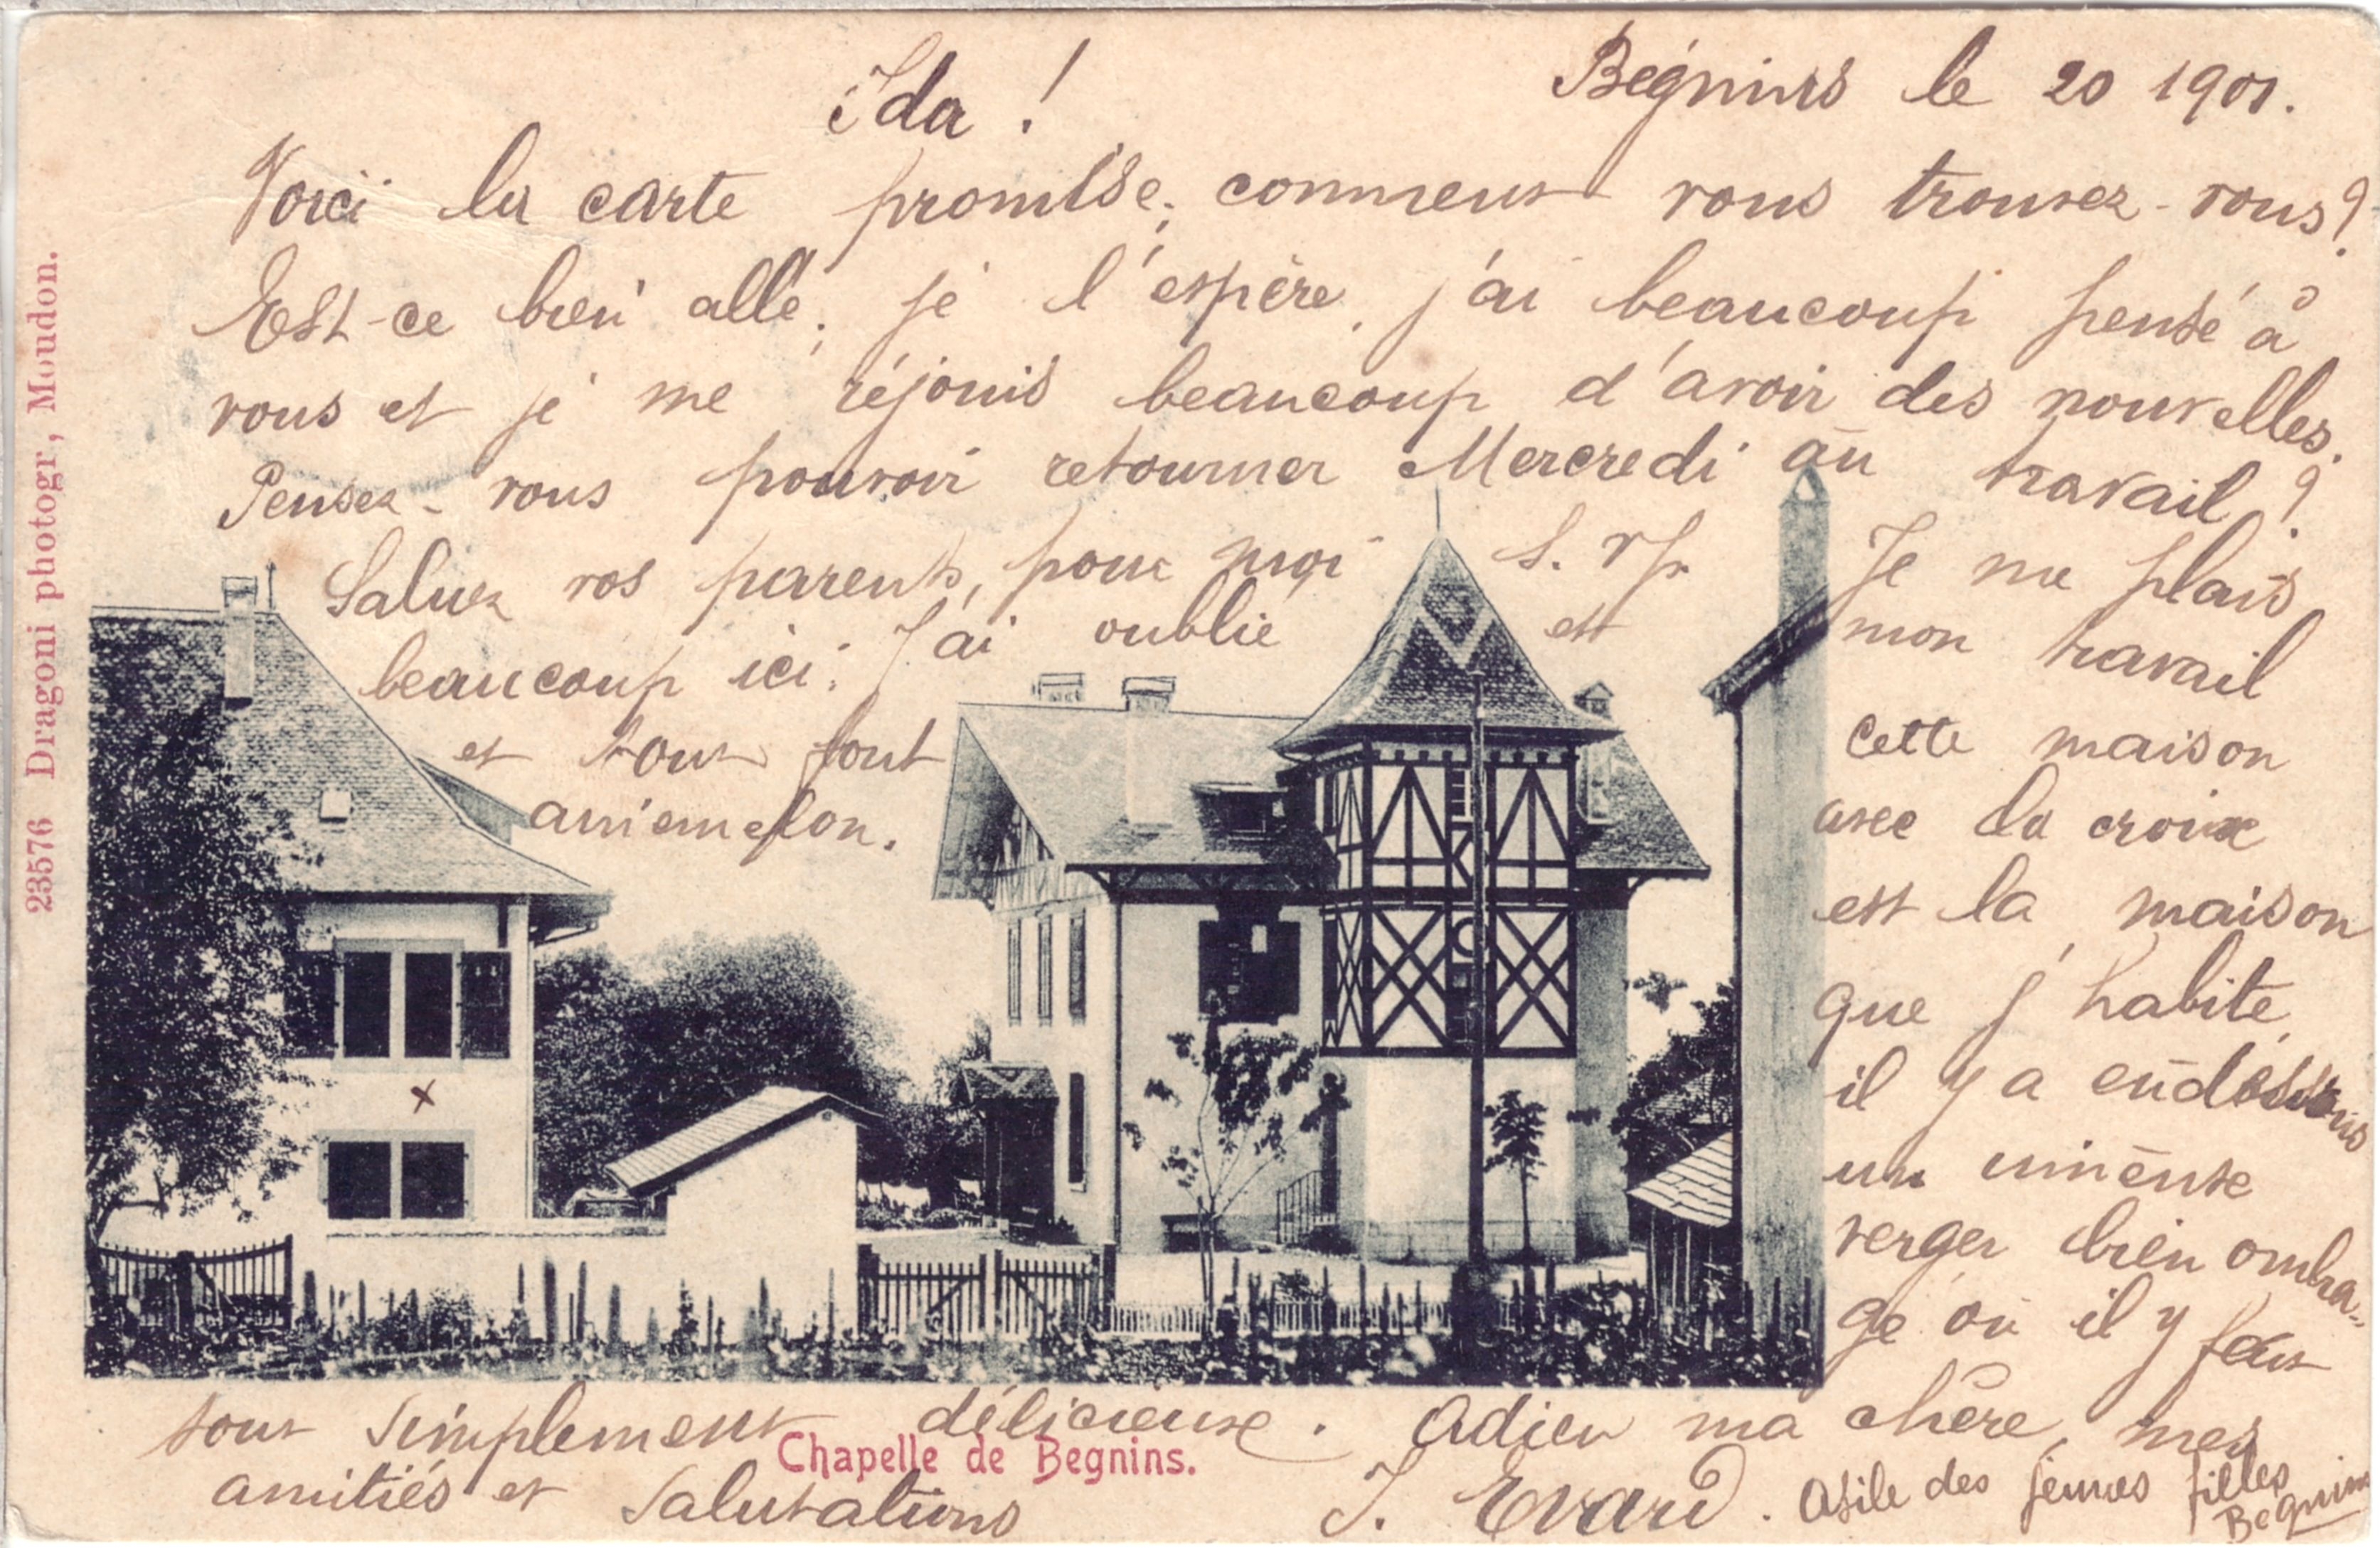 Ida !
Bégnins le 20 1901.
Voici la carte promise; comment vous trouvez-vous?
Est-ce bien allé; je l'espère, j'ai beaucoup pensé à
vous et je me réjouis beaucoup d'avoir des nouvelles.
Pensez-vous pouvoir retourner Mercredi au travail?
Saluez vos parents, pour moi s. v p. Je me plais
beaucoup ici; J'ai oublié et mon travail
et tout tout
Cette maison
avec la croix
est la maison
que j'habite,
il y a en
un iménse
verger bien ombra-
gé où il y fait
tout simplement délicieuse. Adieu ma chère, mes
amitiés et Salutations J. Evard. Asile des jeunes filles
Begnins
Chapelle de Begnins.
23576 Dragoni photogr, Moudon.